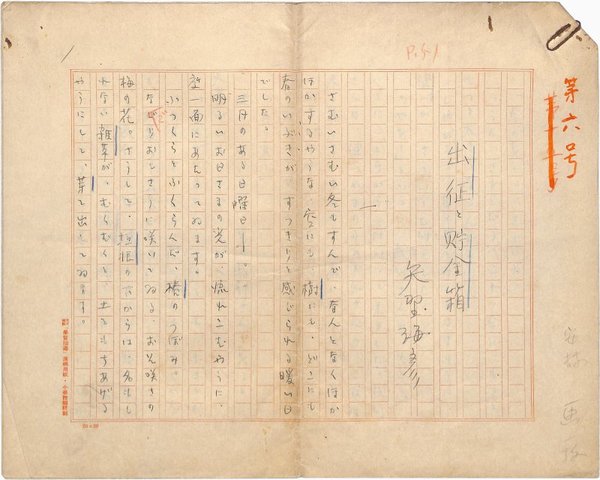 第六号
P.51
出征と貯金箱
一
さむいさむい冬もすんで、なんとなくほか
ほかするやうな、空にも、樹にも、どこにも
春のいぶきが、すつきりと感じられる暖い日
でした。
三月のある日曜日――。
明るいお日さまの光が、流れこむやうに、
一面にあたつてゐます。
ふつくらとふくらんだ、椿のつぼみ。
なごりおしさうに咲いてゐる、お咲きの
梅の花。さうして、垣根の下からは、名もし
れない雑草が、むくむくと、土をもちあげる
やうにして、芽を出してゐます。